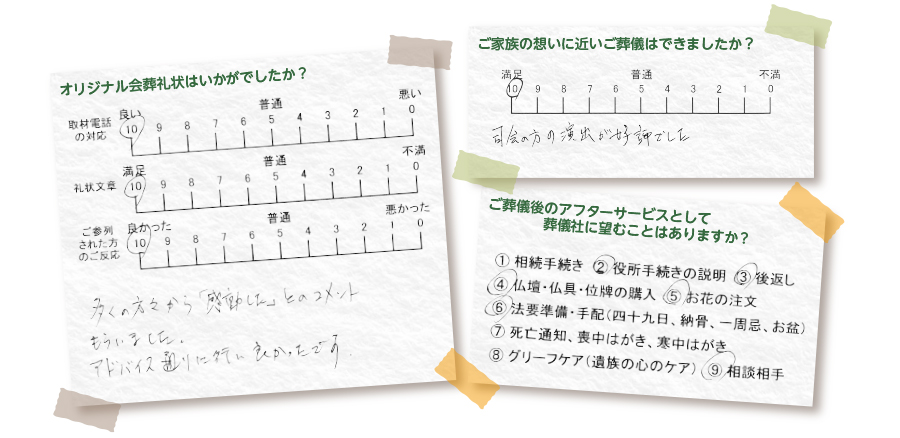 オリジナル会葬礼状はいかがでしたか？
良い 普通 悪い
取材電話
の対応
10 9 8 7 6 5 4 3 2 1 0
満足 普通 不満
礼状文章
10 9 8 7 6 5 4 3 2 1 0
良かった 普通 悪かった
ご参列
された方
のご反応
10 9 8 7 6 5 4 3 2 1 0
多くの方々から「感動した」とのコメント
もらいました。
アドバイス通りに行い良かったです。
ご家族の想いに近いご葬儀はできましたか？
満足 普通 不満
10 9 8 7 6 5 4 3 2 1 0
司会の方の演出が好評でした
ご葬儀後のアフターサービスとして
葬儀社に望むことはありますか？
① 相続手続き ② 役所手続きの説明 ③ 後返し
④ 仏壇・仏具・位牌の購入 ⑤ お花の注文
⑥ 法要準備・手配（四十九日、納骨、一周忌、お盆）
⑦ 死亡通知、喪中はがき、寒中はがき
⑧ グリーフケア（遺族の心のケア） ⑨ 相談相手